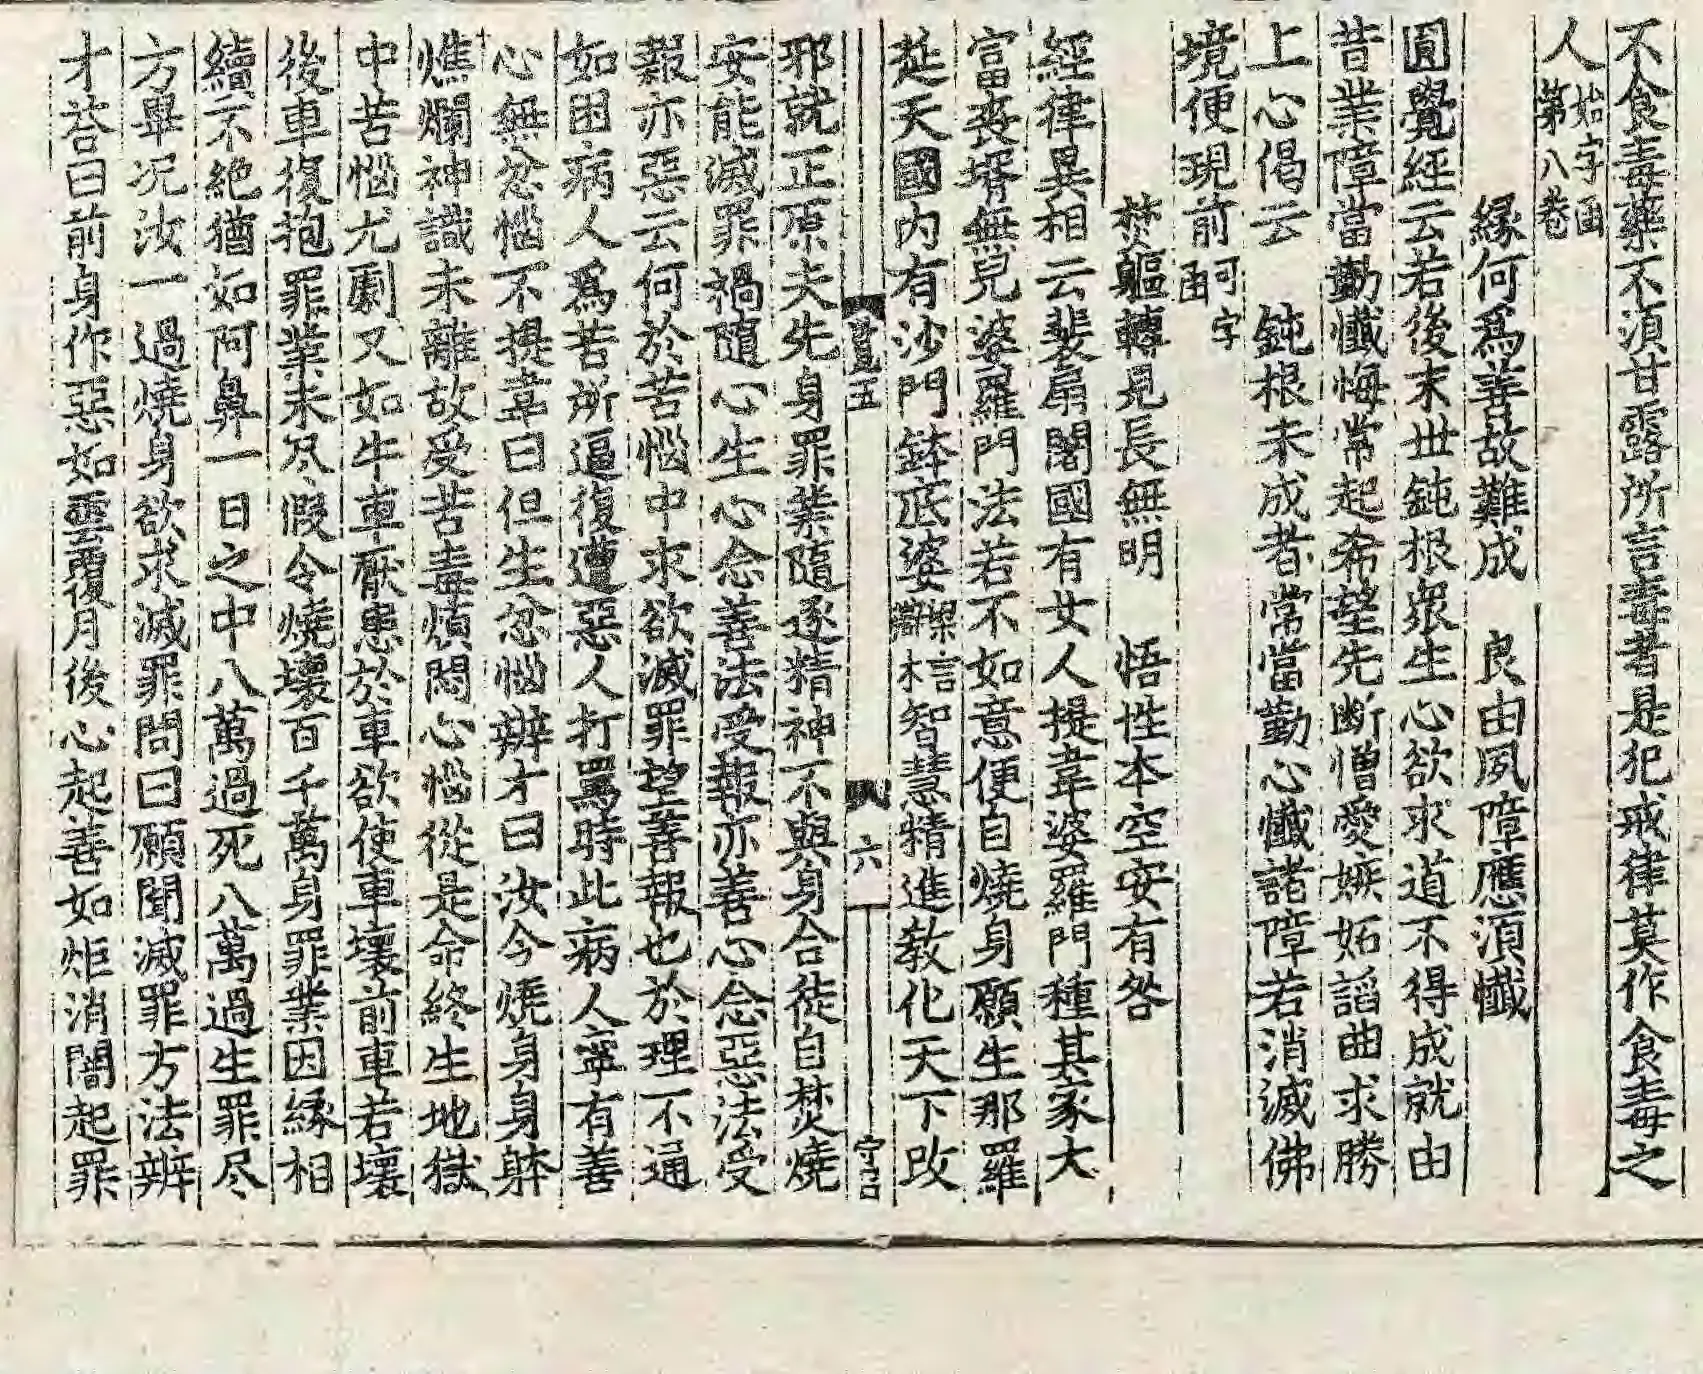 不食毒藥不須甘露所言毒者是犯戒律莫作食毒之
人始字函第八卷
緣何爲善故難成　良由夙障應須懺
圓覺經云若後末世鈍根衆生心欲求道不得成就由
昔業障當勤懺悔常起希望先斷憎愛嫉妬謟曲求勝
上心偈云　鈍根未成者常當勤心懺諸障若消滅佛
境便現前
焚軀轉見長無明　悟性本空安有咎
經律異相云裴扇闍國有女人提韋婆羅門種其家大
富喪壻無兒婆羅門法若不如意便自燒身願生那羅
延天國内有沙門鉢底婆梁言辯才智慧精進教化天下改
六
守己
邪就正原夫先身罪業隨逐精神不與身合徒自焚燒
安能滅罪禍隨心生心念善法受報亦善心念惡法受
報亦惡云何於苦惱中求欲滅罪望善報也於理不通
如困病人爲苦所逼復遭惡人打罵時此病人寧有善
心無忿惱不提韋曰但生忿惱辨才曰汝今燒身身躰
燋爛神識未離故受苦毒煩悶心惱從是命終生地獄
中苦惱尤劇又如牛車厭患於車欲使車壞前車若壞
後車復抱罪業未尽假令燒壞百千萬身罪業因緣相
續不絶猶如阿鼻一日之中八萬過死八萬過生罪尽
方畢况汝一過燒身欲求滅罪問曰願聞滅罪方法辨
才荅曰前身作惡如雲覆月後心起善如炬消闇起罪